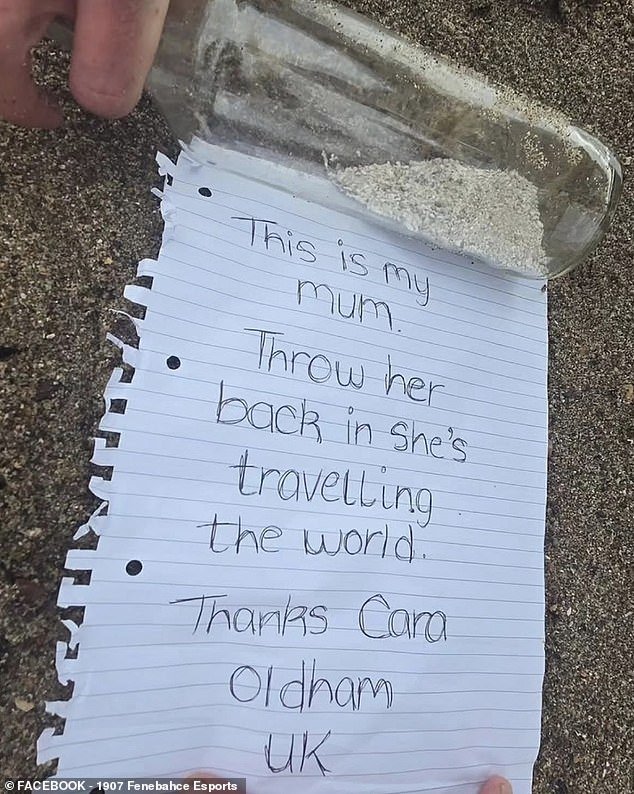 This is my
mum.
Throw her
back in she's
travelling
the world.
Thanks Cara
Oldham
UK
© FACEBOOK - 1907 Fenebahce Esports